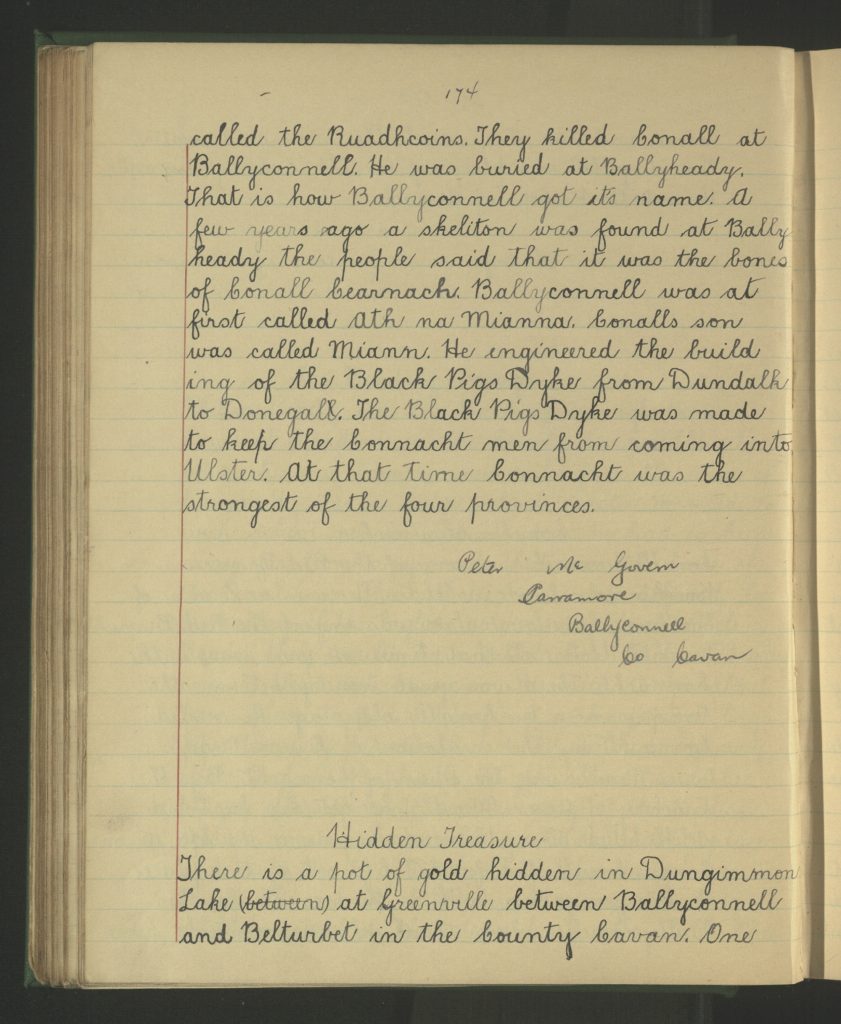 174
called the Ruadhcoins. They killed Conall at
Ballyconnell. He was buried at Ballyheady.
That is how Ballyconnell got its name. A
few years ago a skeliton was found at Bally
heady the people said that it was the bones
of Conall Cearnach. Ballyconnell was at
first called Ath na Mianna. Conalls son
was called Miann. He engineered the build
ing of the Black Pigs Dyke from Dundalk
to Donegal. The Black Pigs Dyke was made
to keep the Connacht men from coming into
Ulster. At that time Connacht was the
strongest of the four provinces.
Peter Mc Govern
Ballyconnell
Co Cavan
Hidden Treasure
There is a pot of gold hidden in Dungimmon
Lake (between) at Greenville between Ballyconnell
and Belturbet in the County Cavan. One